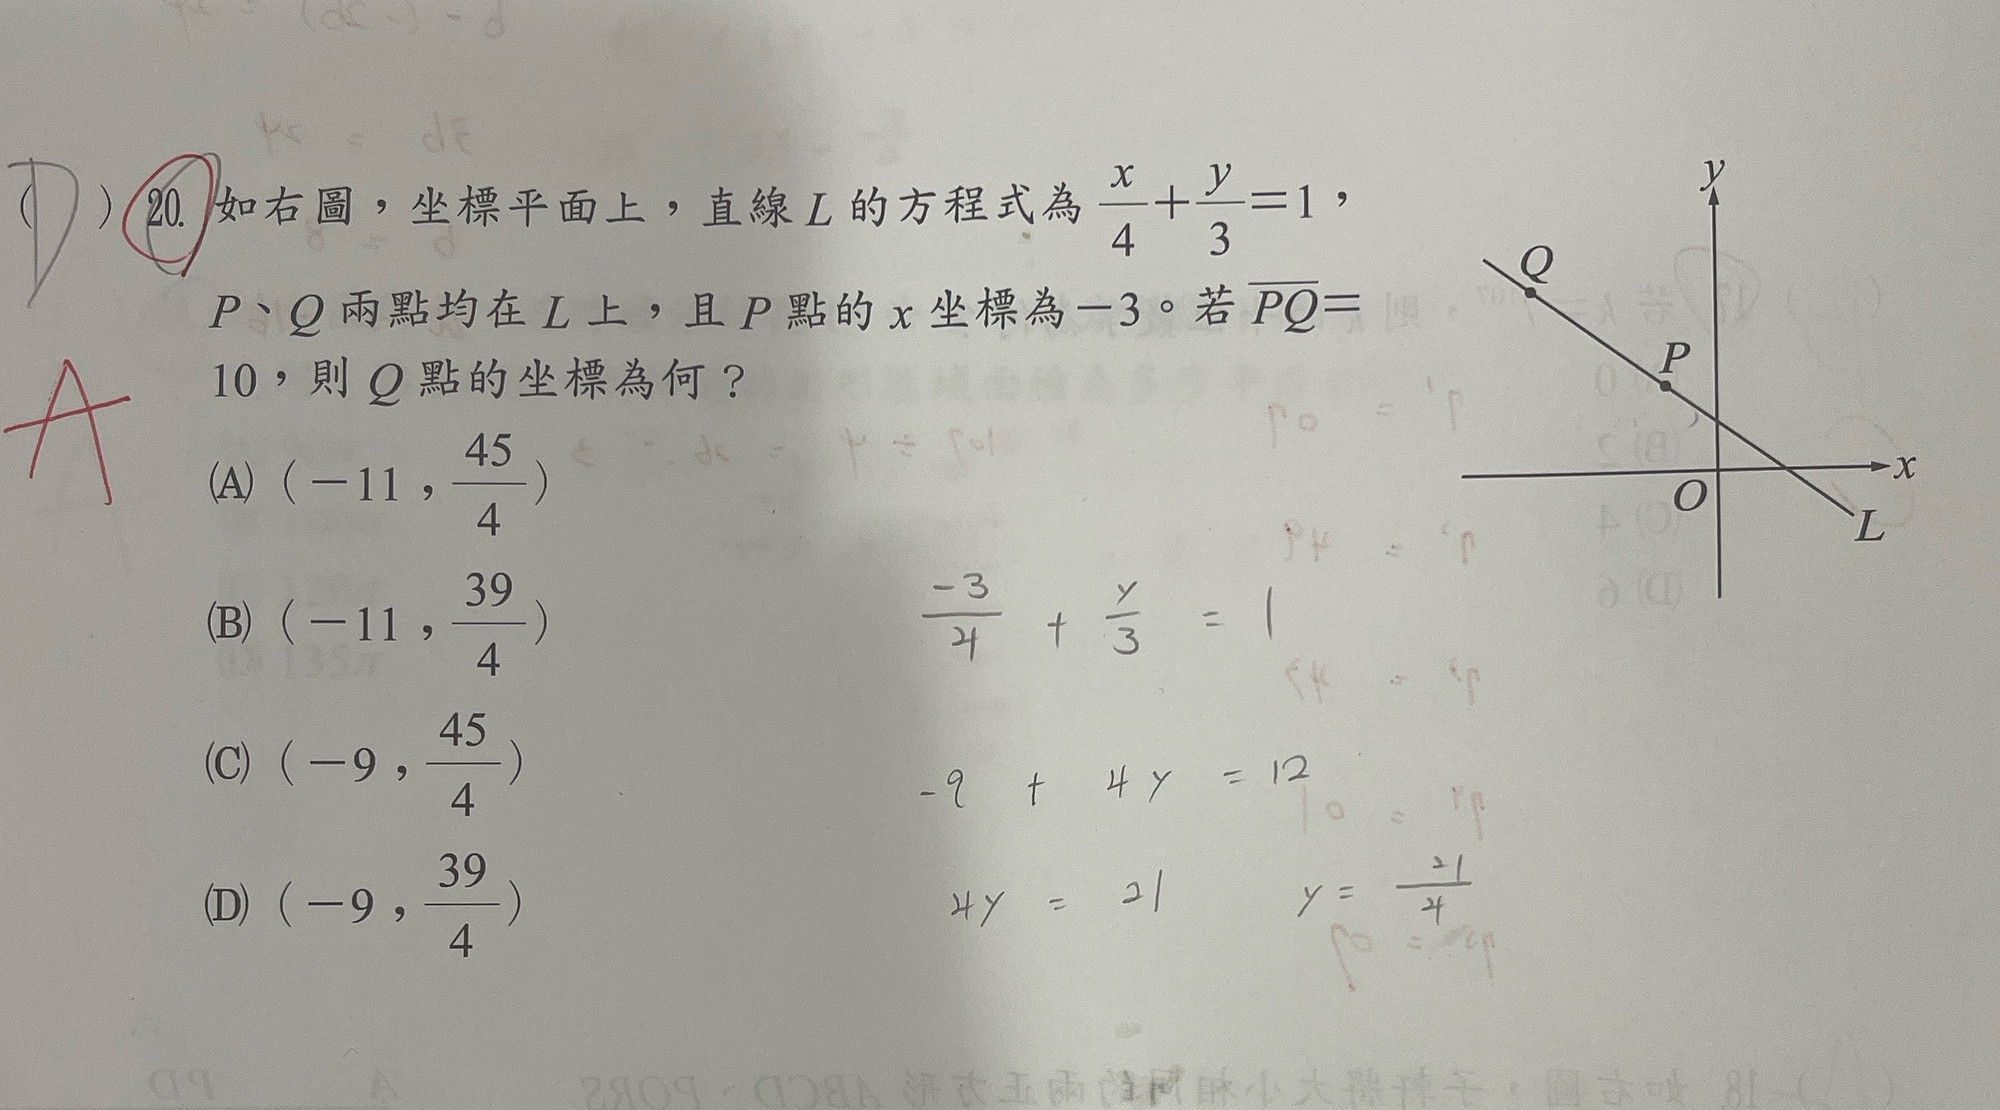 (D) 20. 如右圖，坐標平面上，直線 L 的方程式為 x/4 + y/3 = 1，
P、Q 兩點均在 L 上，且 P 點的 x 坐標為 −3。若 PQ =
10，則 Q 點的坐標為何？
A
(A) (−11, 45/4)
(B) (−11, 39/4)
(C) (−9, 45/4)
(D) (−9, 39/4)
y
Q
P
x
O
L
-3/4 + y/3 = 1
-9 + 4y = 12
4y = 21 y = 21/4